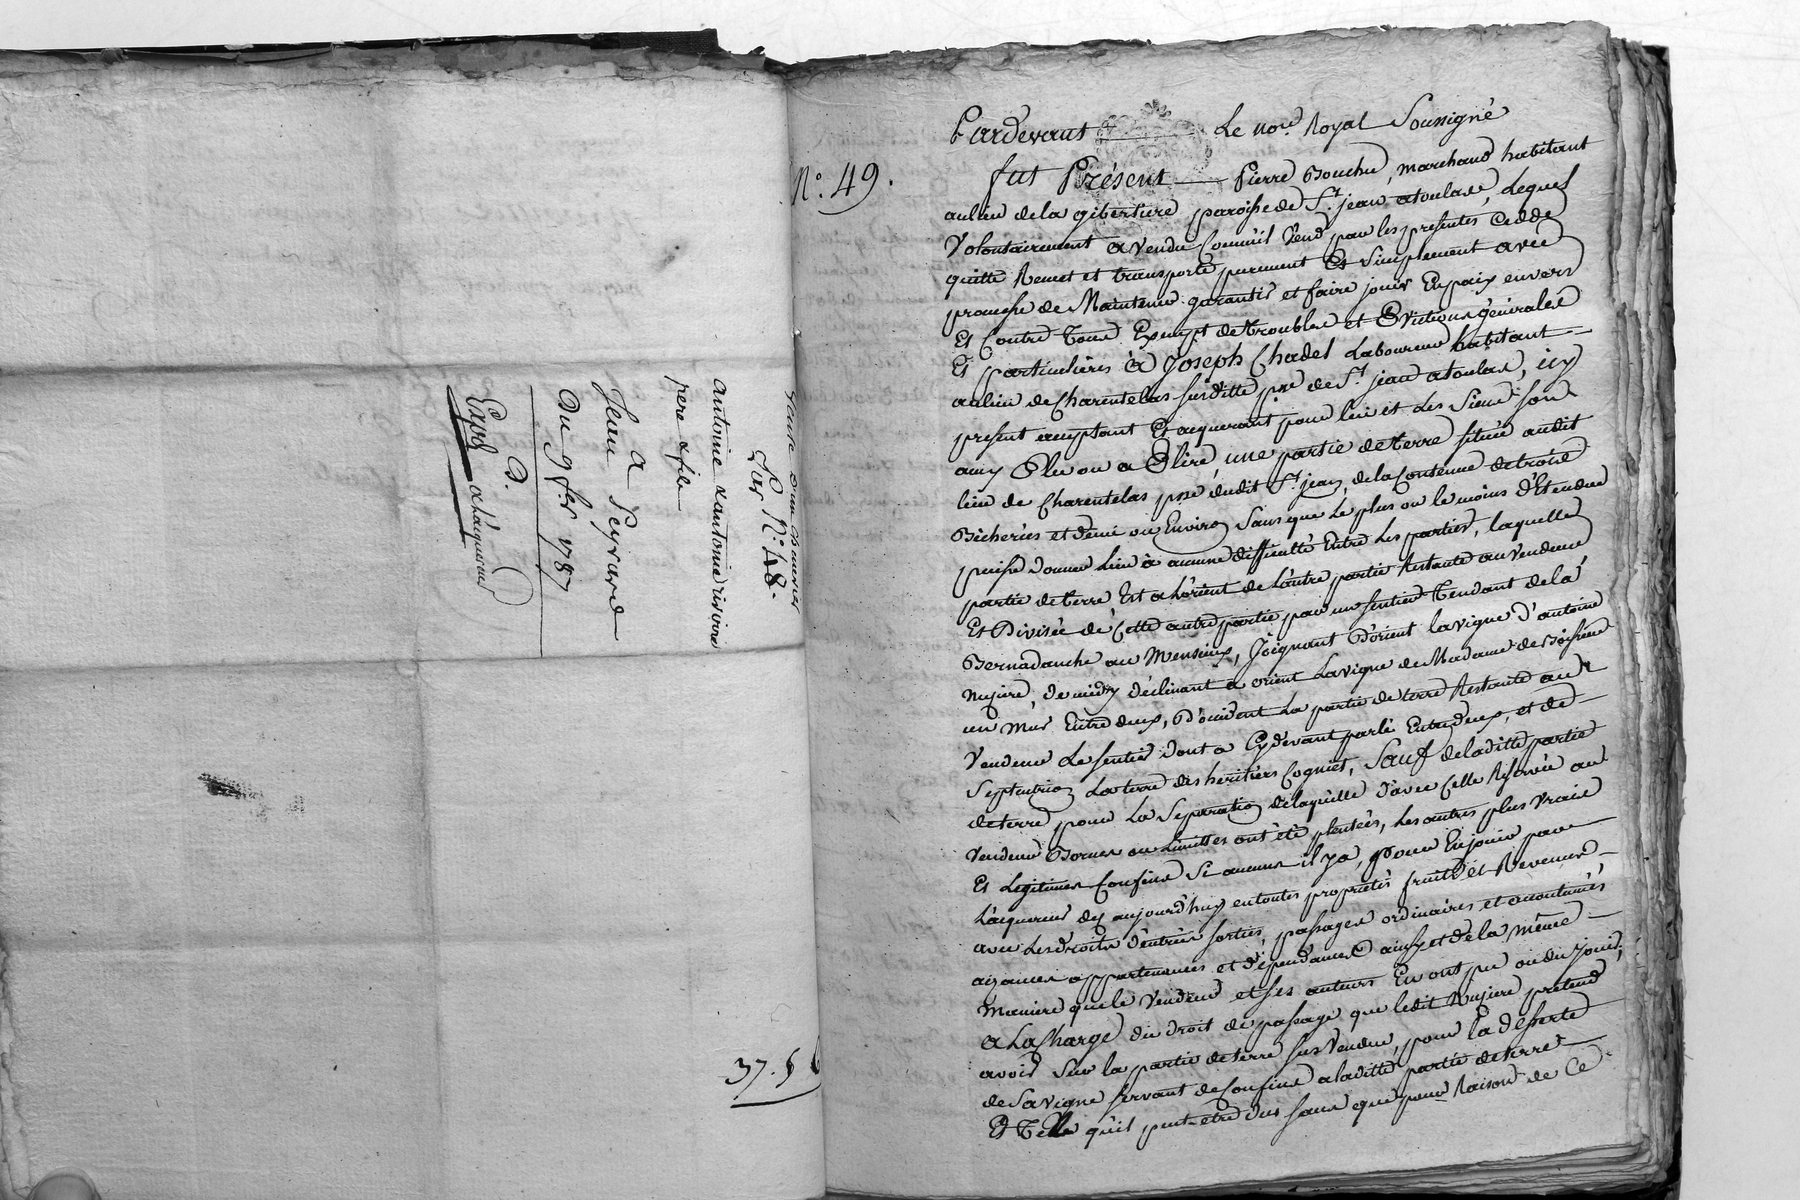 vente d'un chauvier
Sur N.° 48.
antoine & antoine rivoire
pere & fils
a
Jean Peyrard
Du 9 f.er 1787
D.
Expé a l'acquereur
37. 5
N.° 49.
Pardevant Le no.re Royal Soussigné
fut Présent Pierre Bouchu, marchand habitant
au lieu de la giberliere paroisse de S.t jean atoulase, Lequel
Volontairement a vendu Comm'il Vend par les presentes Cedde
quitte Remet et transporte purement Et Simplement avec
promesse de Maintenir garantir et faire jouir En paix envers
Et Contre Tous Exempt de troubles et Evictions générales
Et particulieres à Joseph Chadel Laboureur habitant
au lieu de Charentelas susditte p.sse de S.t jean atoulase, icy
present acceptant Et acquerant pour lui et Les Siens son
amy Elu ou a Elire, une partie de terre située audit
lieu de Charentelas p.sse dudit S.t jean, de la Contenue de trois
Bicherées et demi ou Environ Sans que Le plus ou le moins d'Etendue
puisse donner Lieu à aucune difficulté Entre Les parties, laquelle
partie de terre Est a L'orient de L'autre partie Restante au Vendeur
Et Divisée de Cette autre partie par un sentier Tendant de la
Bernadanche au Mensieux, Joignant D'orient la vigne d'antoine
Mujiere, de midy déclinant a orient La vigne de Madame de Boissieux
un Mur Entre deux, D'occident La partie de terre Restante au
Vendeur Le sentier dont a Cydevant parlé Entredeux, et de
Septentrion La terre des heritiers Cogniet, Sauf de laditte partie
de terre pour La Separation de laquelle d'avec Celle Reservée au
Vendeur Bornes ou Limittes ont été plantées, Les autres plus Vrais
Et Legitimes Confins Si aucuns il y a, Pour En jouir par
L'acquereur dez aujourd'huy en toutes proprietés fruits et Revenus
avec Les droits d'entrées sorties, passages ordinaires et accoutumés
aizances appartenances et dépendances ainsy et de la même
Maniere que le Vendeur et ses auteurs En ont pu ou du jouir,
a La Charge du droit de passage que ledit Mujiere pretend
avoir Sur la partie de terre sus Vendue, pour La desserte
de Sa vigne servant de Confins a laditte partie de terre
Et Telle qu'il peut-etre dus sans que pour Raison de Ce